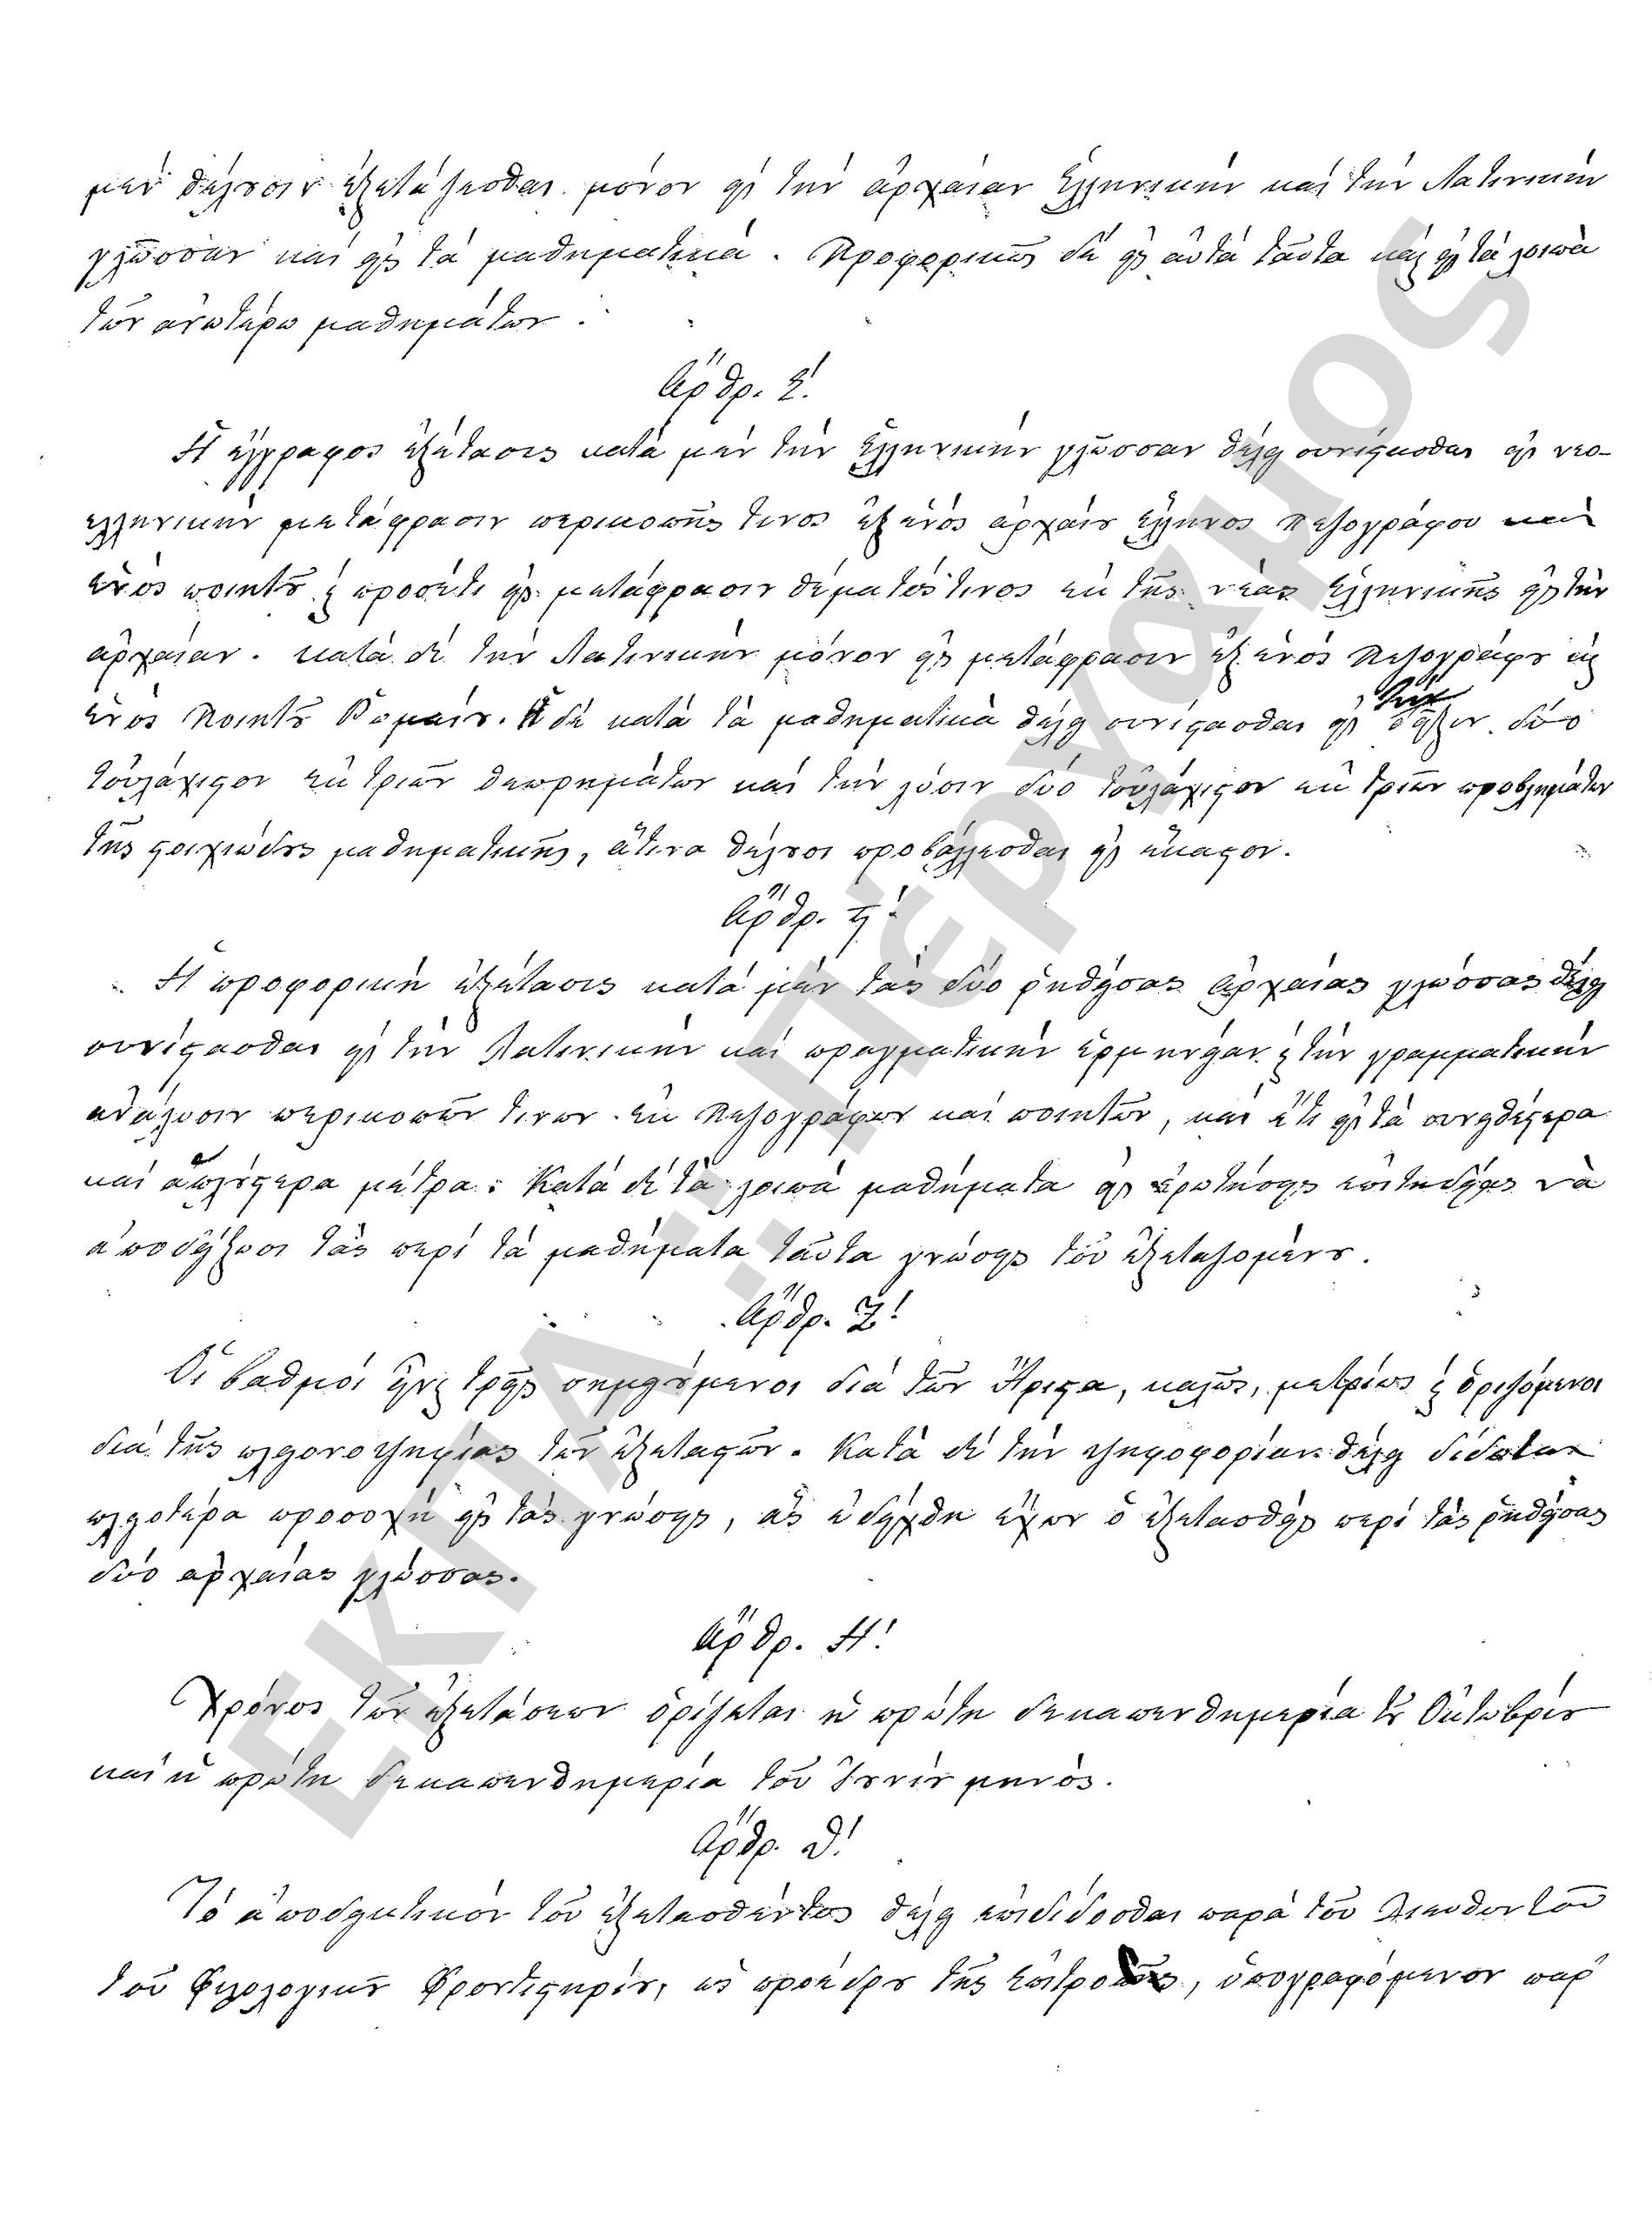 μὲν θέλουσιν ἐξετάζεσθαι μόνον εἰς τὴν ἀρχαίαν Ἑλληνικὴν καὶ τὴν Λατινικὴν
γλῶσσαν καὶ εἰς τὰ μαθηματικά. Προφορικῶς δὲ εἰς αὐτὰ ταῦτα καὶ εἰς τὰ λοιπὰ
τῶν ἀνωτέρω μαθημάτων.
Ἄρθρ. Ε!
Ἡ ἔγγραφος ἐξέτασις κατὰ μὲν τὴν Ἑλληνικὴν γλῶσσαν θέλει συνίστασθαι εἰς νεο-
ελληνικὴν μετάφρασιν περικοπῆς τινος ἐξ ἑνὸς ἀρχαίου Ἕλληνος πεζογράφου καὶ
ἑνὸς ποιητοῦ καὶ προσέτι εἰς μετάφρασιν θέματός τινος ἐκ τῆς νέας Ἑλληνικῆς εἰς τὴν
ἀρχαίαν. κατὰ δὲ τὴν Λατινικὴν μόνον εἰς μετάφρασιν ἐξ ἑνὸς πεζογράφου καὶ
ἑνὸς ποιητοῦ Ῥωμαίου. Ἡ δὲ κατὰ τὰ μαθηματικὰ θέλει συνίστασθαι εἰς τὴν δεῖξιν δύο
τοὐλάχιστον ἐκ τριῶν θεωρημάτων καὶ τὴν λύσιν δύο τοὐλάχιστον ἐκ τριῶν προβλημάτων
τῆς στοιχιώδους μαθηματικῆς, ἅτινα θέλουσι προβάλλεσθαι εἰς ἕκαστον.
Ἄρθρ. Ϛ!
Ἡ προφορικὴ ἐξέτασις κατὰ μὲν τὰς δύο ῥηθείσας ἀρχαίας γλώσσας θέλει
συνίστασθαι εἰς τὴν Λατινικὴν καὶ πραγματικὴν ἑρμηνείαν καὶ τὴν γραμματικὴν
ἀνάλυσιν περικοπῶν τινων ἐκ πεζογράφων καὶ ποιητῶν, καὶ ἔτι εἰς τὰ συνηθέστερα
καὶ ἁπλούστερα μέτρα. Κατὰ δὲ τὰ λοιπὰ μαθήματα εἰς ἐρωτήσεις ἐπιτηδείας νὰ
ἀποδείξωσι τὰς περὶ τὰ μαθήματα ταῦτα γνώσεις τοῦ ἐξεταζομένου.
Ἄρθρ. Ζ!
Οἱ βαθμοὶ εἶναι τρεῖς σημειούμενοι διὰ τῶν Ἄριστα, καλῶς, μετρίως καὶ ὁριζόμενοι
διὰ τῆς πλειονοψηφίας τῶν ἐξεταστῶν. Κατὰ δὲ τὴν ψηφοφορίαν θέλει δίδεται
πλειοτέρα προσοχὴ εἰς τὰς γνώσεις, ἃς ἐδείχθη ἔχων ὁ ἐξετασθεὶς περὶ τὰς ῥηθείσας
δύο ἀρχαίας γλώσσας.
Ἄρθρ. Η!
Χρόνος τῶν ἐξετάσεων ὁρίζεται ἡ πρώτη δεκαπενθημερία τοῦ Ὀκτωβρίου
καὶ ἡ πρώτη δεκαπενθημερία τοῦ Ἰουνίου μηνός.
Ἄρθρ. Θ!
Τὸ ἀποδεικτικὸν τοῦ ἐξετασθέντος θέλει ἐπιδίδοσθαι παρὰ τοῦ Διευθυντοῦ
τοῦ Φιλολογικοῦ Φροντιστηρίου, ὡς προέδρου τῆς ἐπιτροπῆς, ὑπογραφόμενον παρ'
ΕΚΠΑ :: Πέργαμος